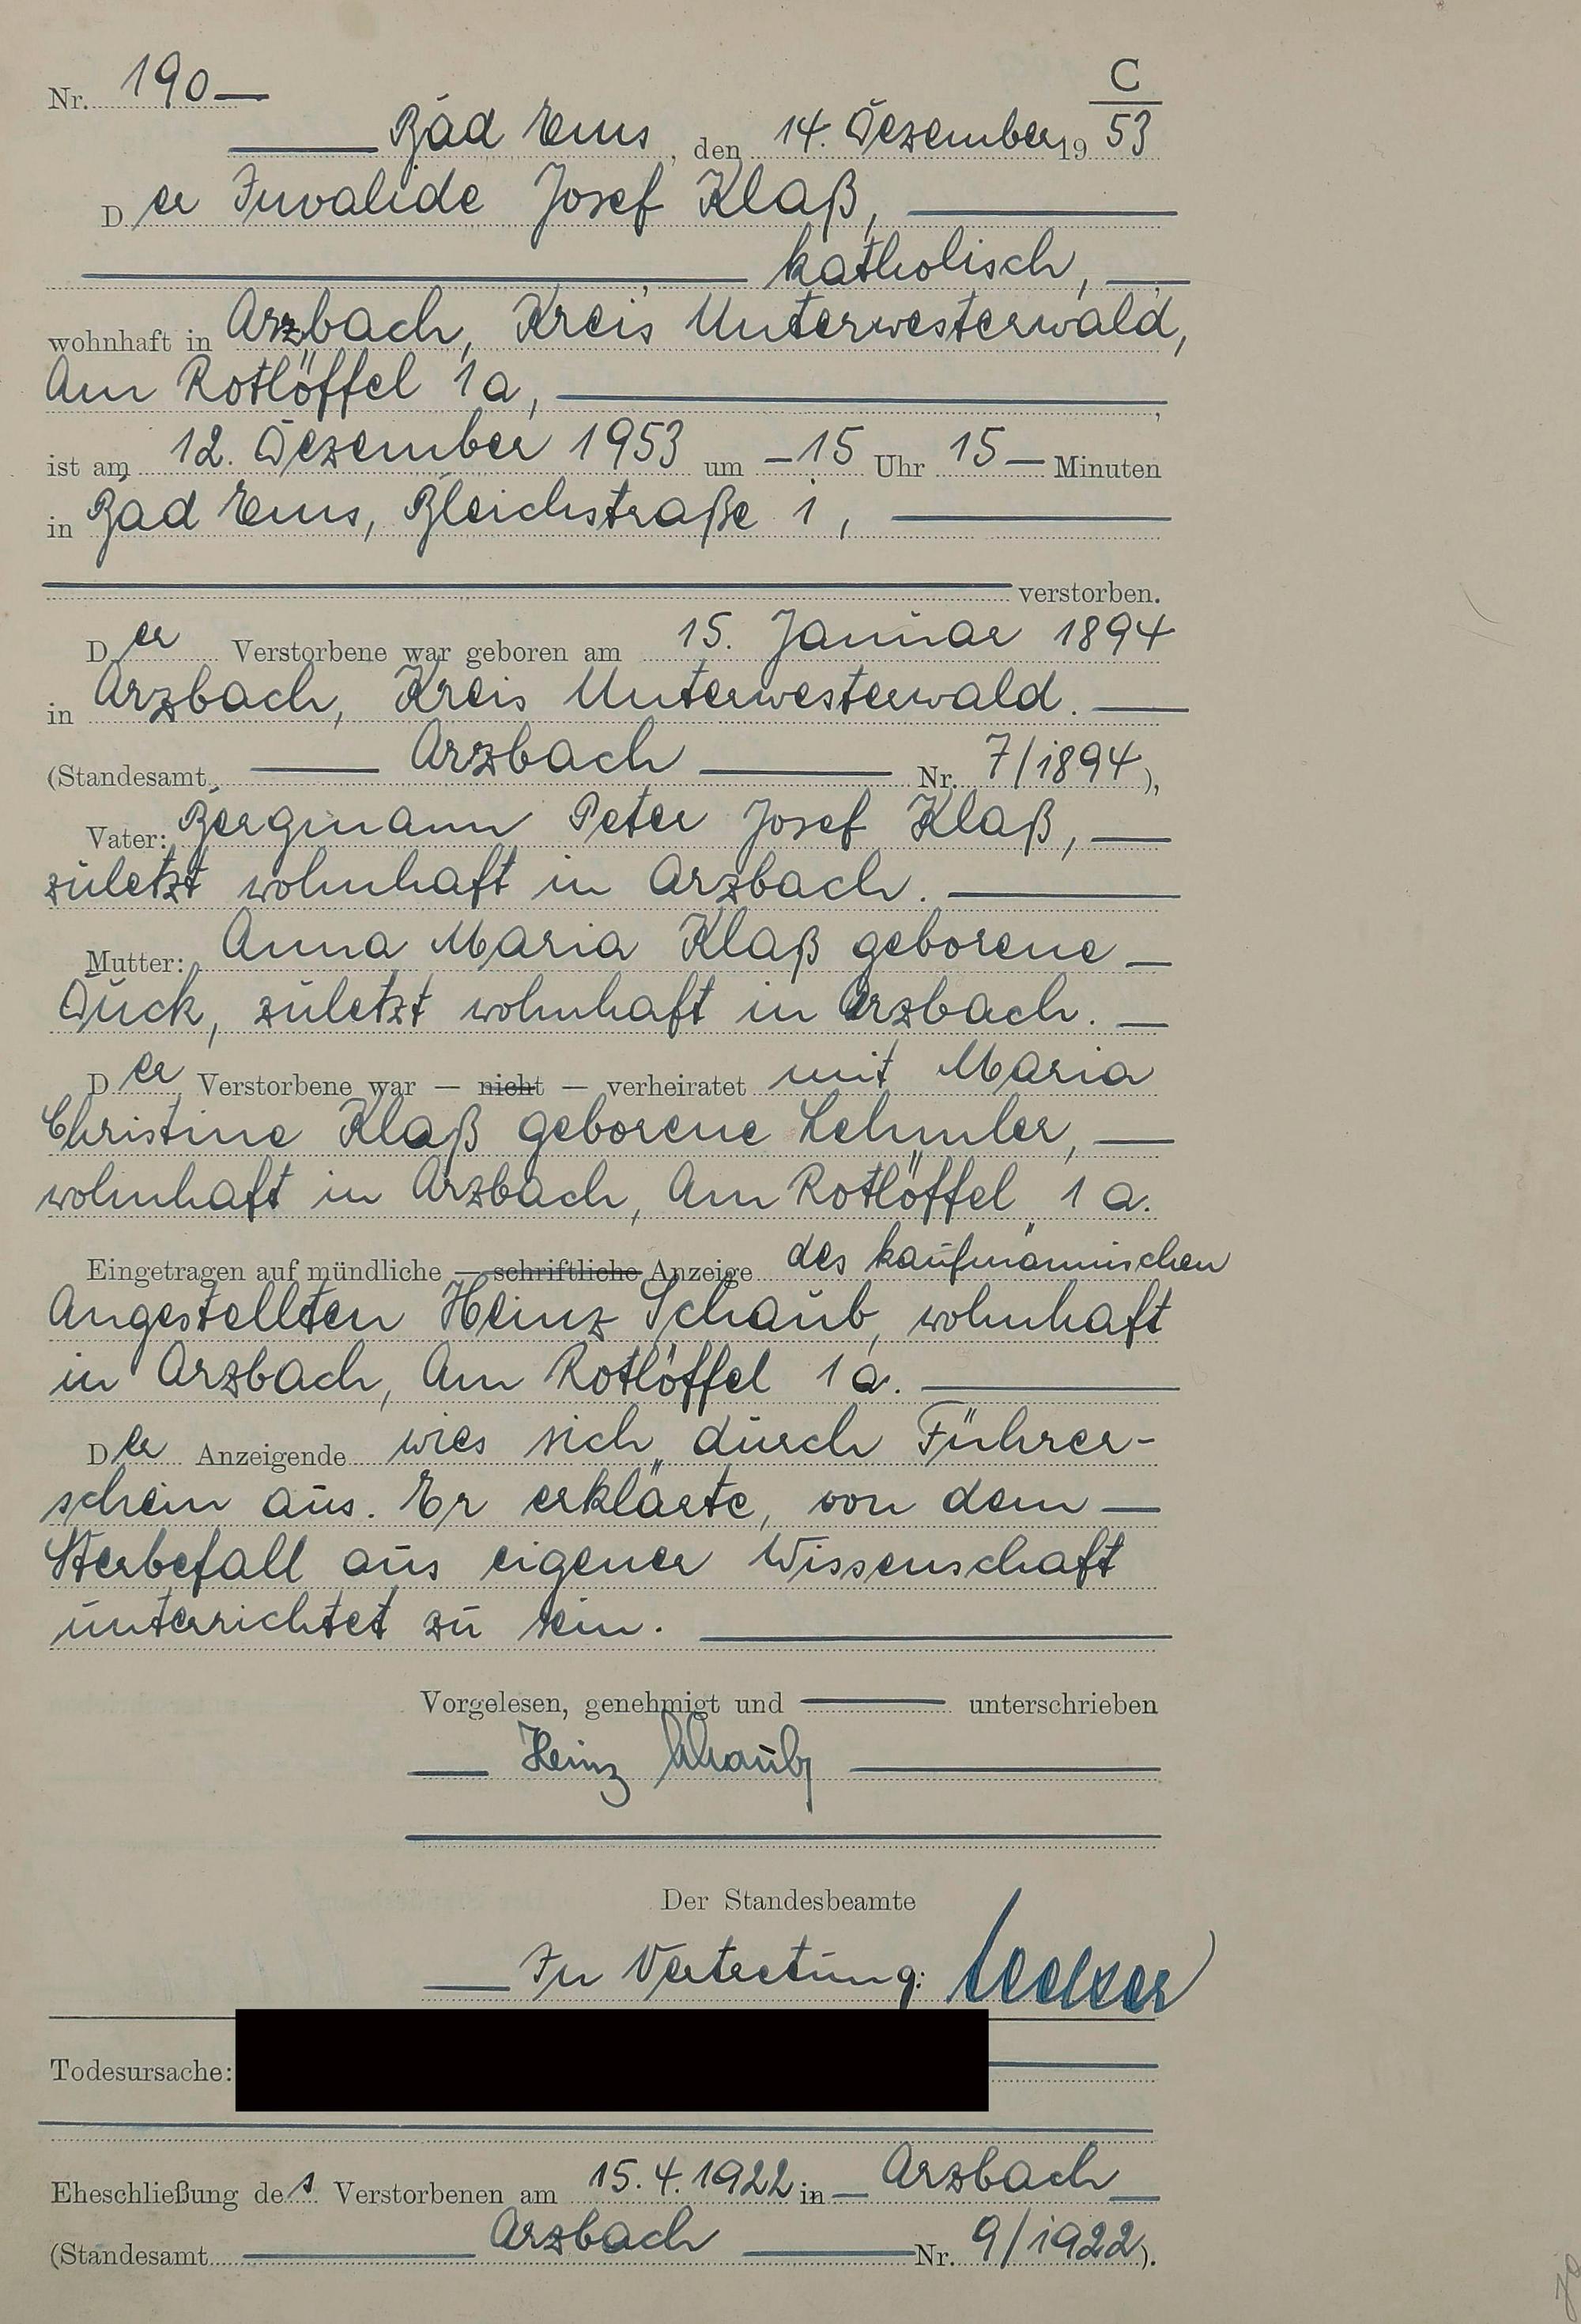 C
Nr. 190
Bad Ems, den 14. Dezember 1953
Der Invalide Josef Klaß,
katholisch,
wohnhaft in Arzbach, Kreis Unterwesterwald,
Am Rotlöffel 1a,
ist am 12. Dezember 1953 um 15 Uhr 15 Minuten
in Bad Ems, Bleichstraße 1,
verstorben.
Der Verstorbene war geboren am 15. Januar 1894
in Arzbach, Kreis Unterwesterwald.
(Standesamt Arzbach Nr. 7/1894),
Vater: Bergmann Peter Josef Klaß,
zuletzt wohnhaft in Arzbach.
Mutter: Anna Maria Klaß geborene
Duck, zuletzt wohnhaft in Arzbach.
Der Verstorbene war — nicht — verheiratet mit Maria
Christine Klaß geborene Lehmler,
wohnhaft in Arzbach, Am Rotlöffel 1a.
Eingetragen auf mündliche — schriftliche Anzeige des kaufmännischen
Angestellten Heinz Schaub, wohnhaft
in Arzbach, Am Rotlöffel 1a.
Der Anzeigende wies sich durch Führer-
schein aus. Er erklärte, von dem
Sterbefall aus eigener Wissenschaft
unterrichtet zu sein.
Vorgelesen, genehmigt und unterschrieben
Heinz Schaub
Der Standesbeamte
In Vertretung:
Todesursache:
Eheschließung des Verstorbenen am 15.4.1922 in Arzbach
(Standesamt Arzbach Nr. 9/1922).